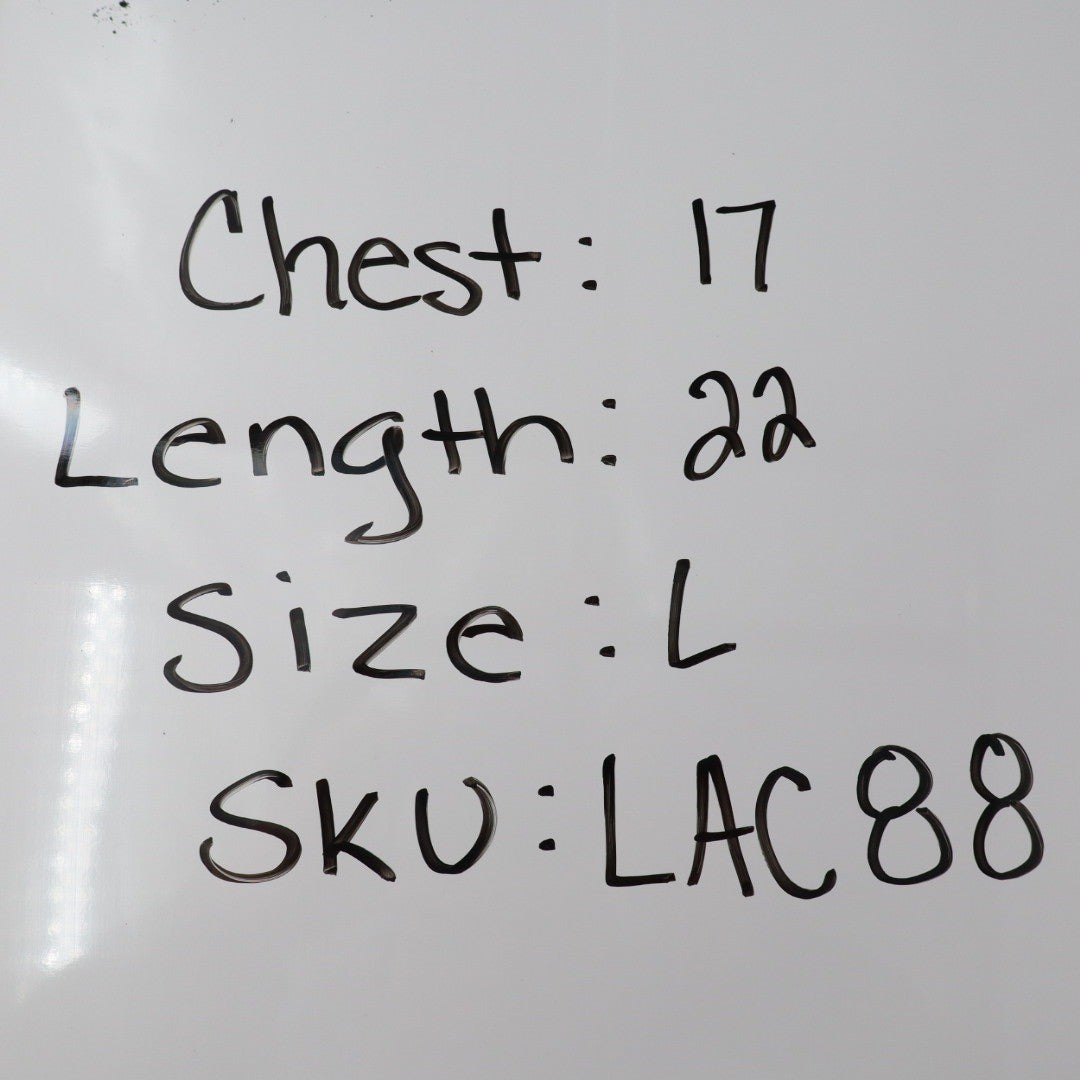 Chest: 17
Length: 22
Size: L
SKU: LAC88